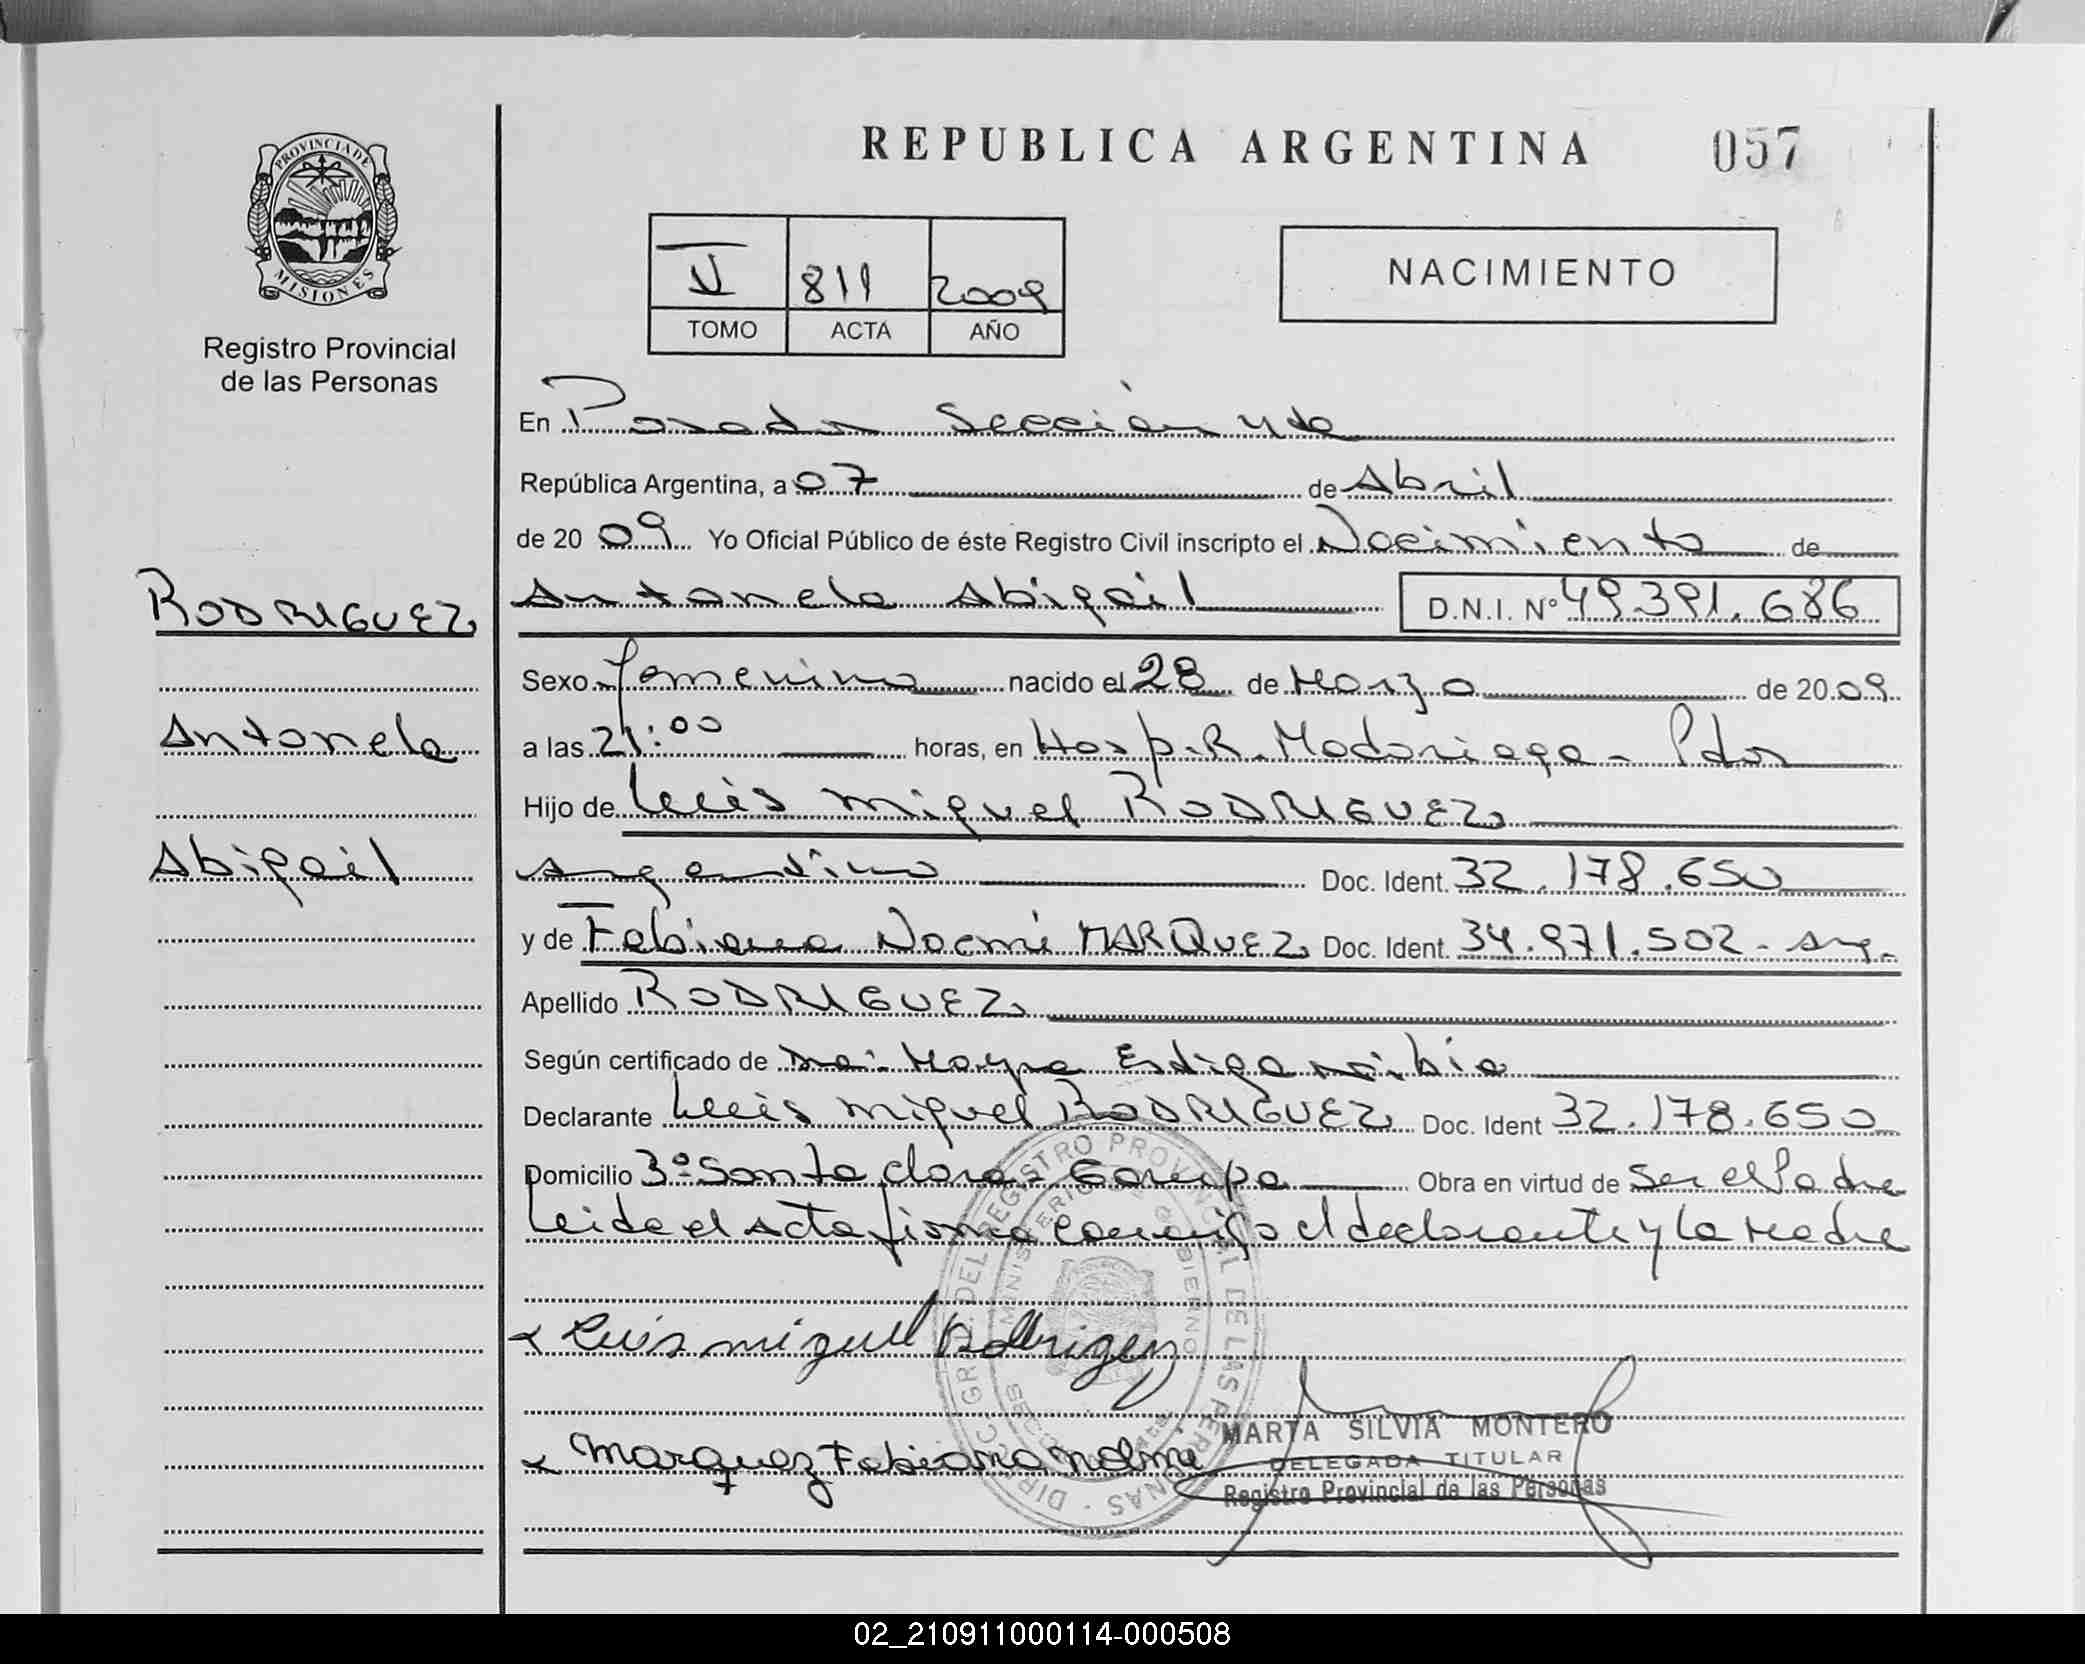 REPUBLICA ARGENTINA 057
PROVINCIA DE
MISIONES
Registro Provincial
de las Personas
II 811 2009
TOMO ACTA AÑO
NACIMIENTO
En Posadas Sección 4ta
República Argentina, a 07 de Abril
de 2009 Yo Oficial Público de éste Registro Civil inscripto el Nacimiento de
RODRIGUEZ
Antonela Abigail D.N.I. Nº 49.391.686
Sexo femenino nacido el 28 de Marzo de 2009
Antonela
a las 21:00 horas, en Hosp. R. Madariaga - Pdas
Hijo de Luis Miguel RODRIGUEZ
Abigail
argentino Doc. Ident. 32.178.650
y de Fabiana Noemi MARQUEZ Doc. Ident. 34.971.502 - arg.
Apellido RODRIGUEZ
Según certificado de Dra: Mayra Estigarribia
Declarante Luis Miguel RODRIGUEZ Doc. Ident 32.178.650
Domicilio 3º Santa Clara - Garupa Obra en virtud de Ser el Padre
Leida el Acta firma conmigo el declarante y la Madre
DIRECC. GRAL. DEL REGISTRO PROVINCIAL DE LAS PERSONAS
MINISTERIO DE GOBIERNO
Luis miguel Rodriguez
Marquez Fabiana noemi
MARTA SILVIA MONTERO
DELEGADA TITULAR
Registro Provincial de las Personas
02_210911000114-000508